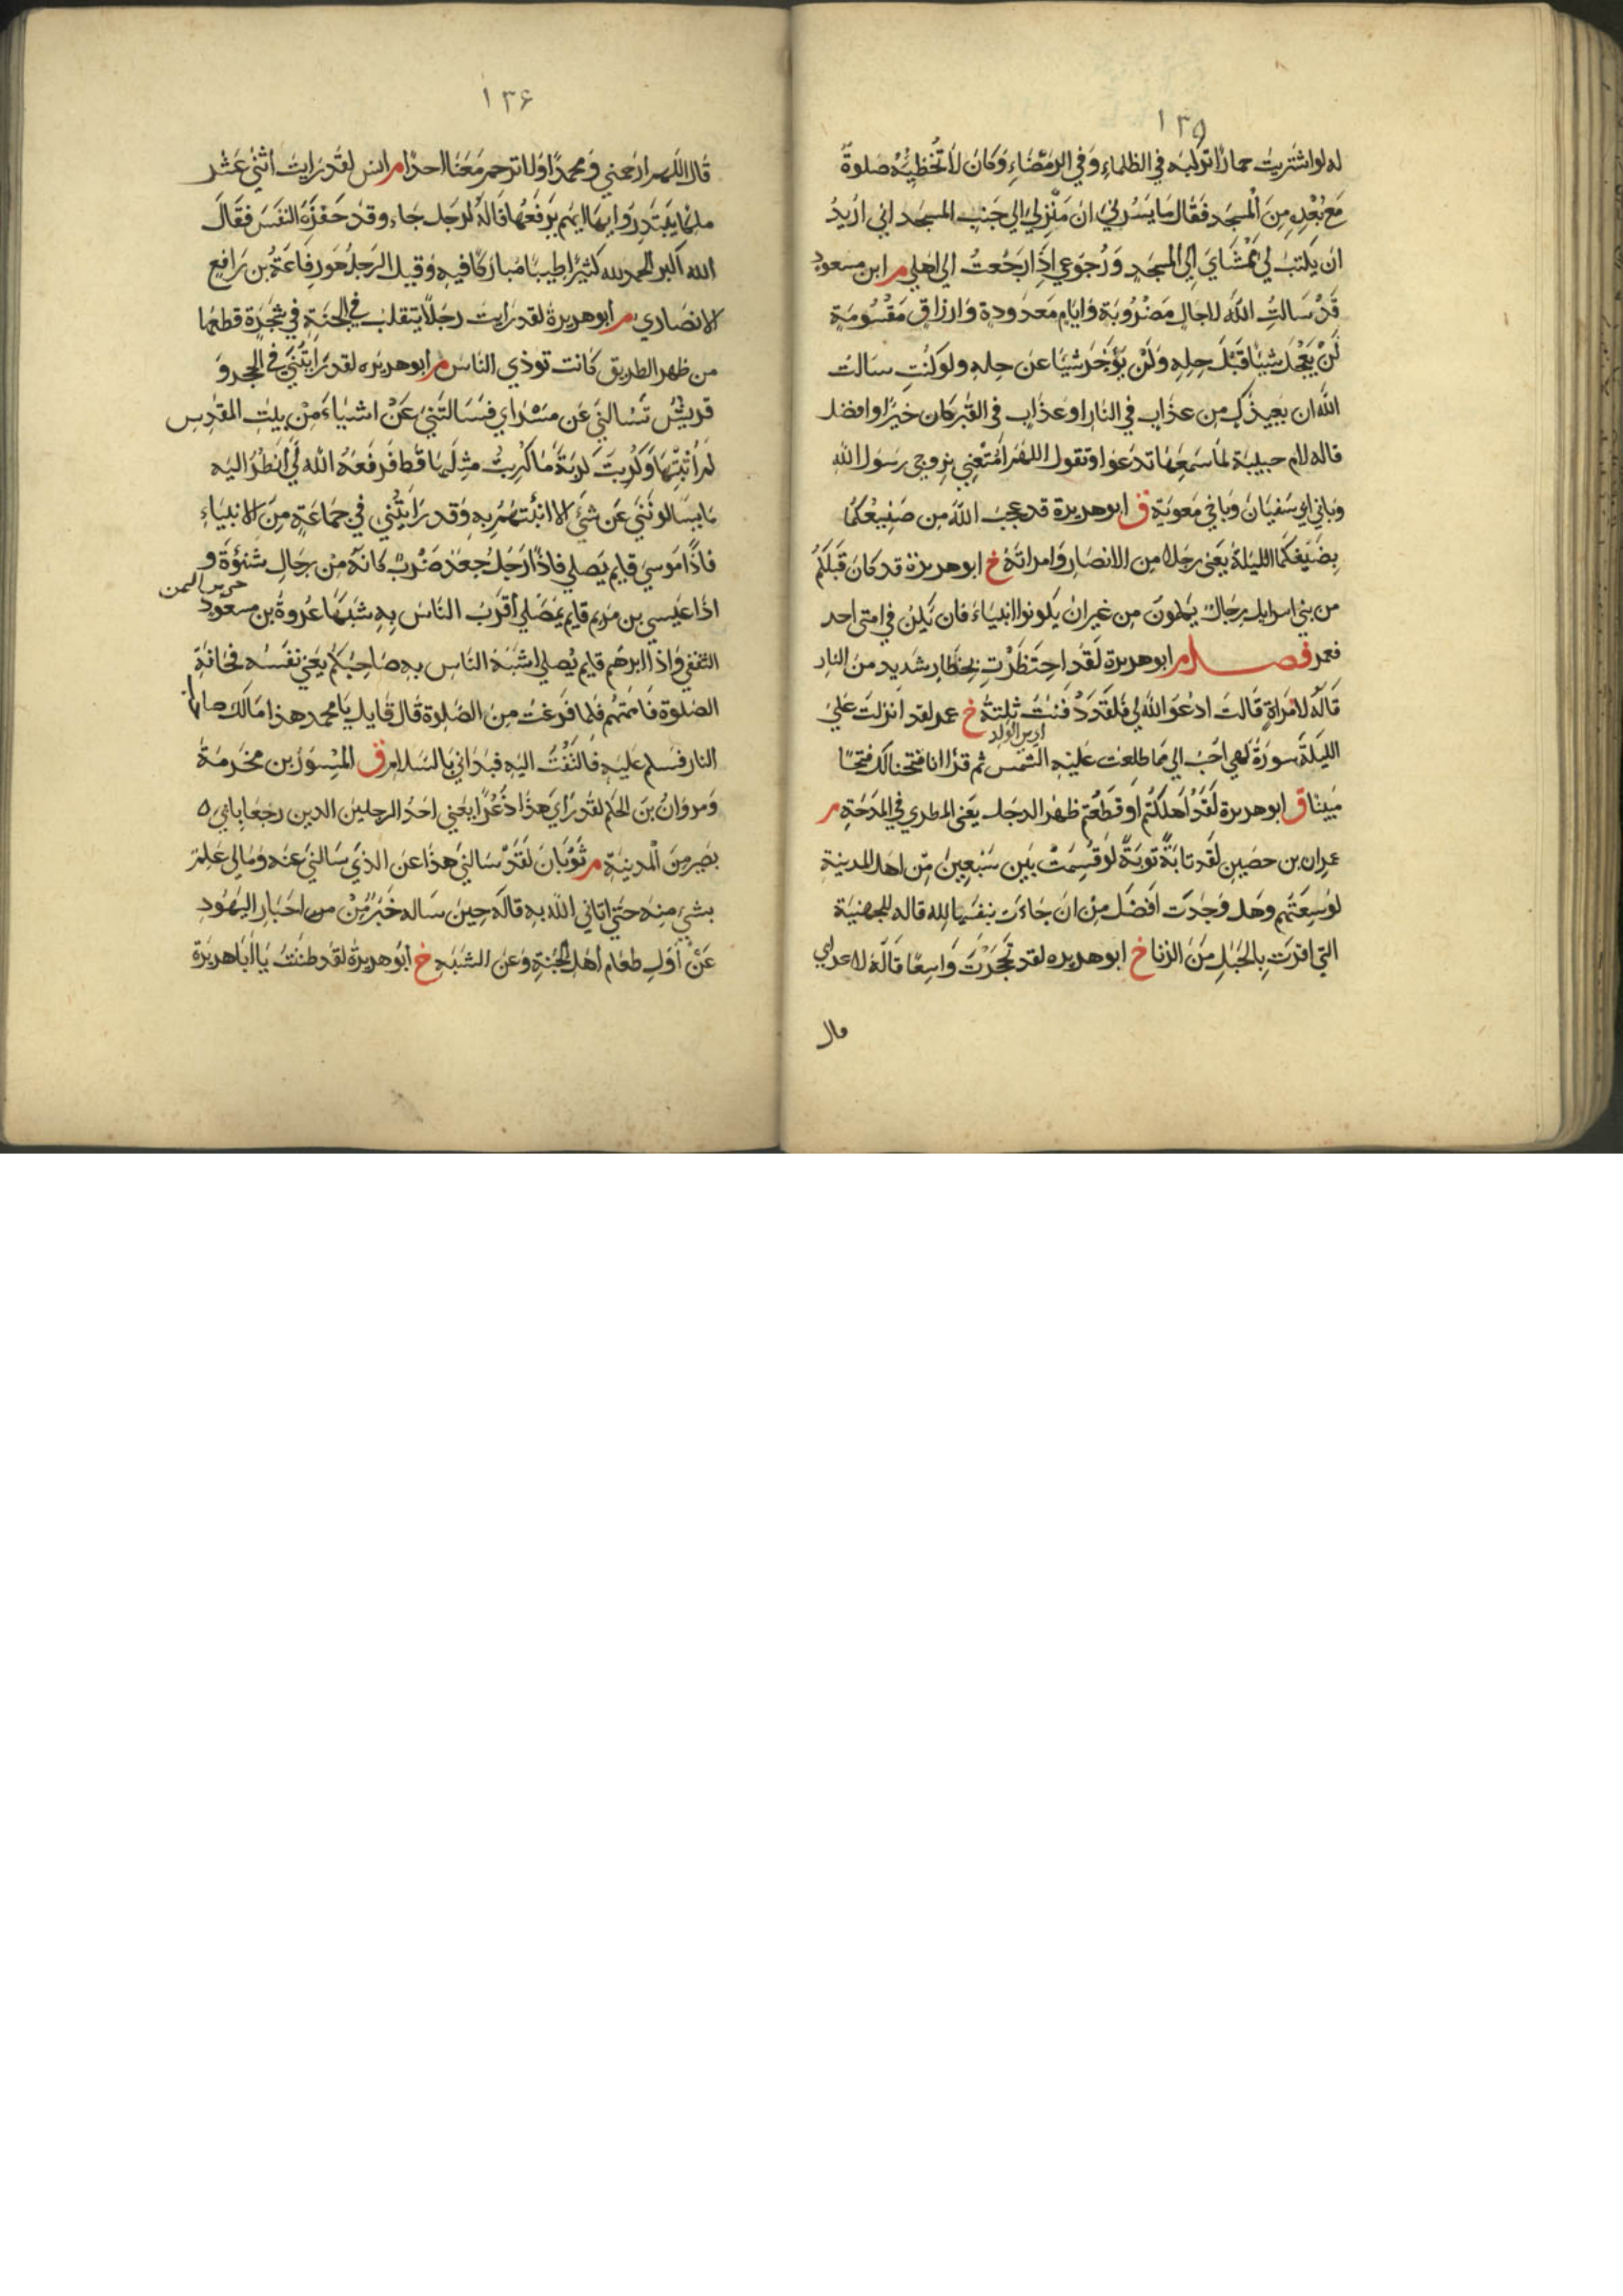 ١٣٥
له لو اشتريت حمارا تركبه في الظلماء وفي الرمضاء وكان لا تخطيه صلوة
مع بعده من المسجد فقال ما يسرني ان منزلي الي جنب المسجد اني اريد
ان يكتب لي ممشاي الي المسجد ورجوعي اذا رجعت الي اهلي م ابن مسعود
قد سالت الله لاجال مضروبة وايام معدودة وارزاق مقسومة
لن يعجل شيئا قبل حله ولن يؤخر شيئا عن حله ولو كنت سالت
الله ان يعيذك من عذاب في النار او عذاب في القبر كان خيرا وافضل
قاله لام حبيبة لما سمعها تدعوا وتقول اللهم امتعني بزوجي رسول الله
وبابي ابي سفيان وباخي معوية ق ابو هريرة قد عجب الله من صنيعكما
بضيفكما الليلة يعني رجلا من الانصار وامراته خ ابو هريرة قد كان قبلكم
من بني اسرايل رجال يكلمون من غير ان يكونوا انبياء فان يكن في امتي احد
فعمر فصل م ابو هريرة لقد احتظرت بحظار شديد من النار
قاله لامراة قالت ادعوا الله لي فلقد دفنت ثلثة خ عمر لقد انزلت علي
اي من الولد
الليلة سورة لهي احب الي مما طلعت عليه الشمس ثم قرا انا فتحنا لك فتحا
مبينا ق ابو هريرة لقد اهلكتم او قطعتم ظهر الرجل يعني المطري في المدحة م
عمران بن حصين لقد تابة توبة لو قسمت بين سبعين من اهل المدينة
لوسعتهم وهل وجدت افضل من ان جاءت بنفسها لله قاله للجهنية
التي اقرت بالحبل من الزنا خ ابو هريره لقد تحجرت واسعا قاله لاعرابي
قال
١٣۶
قال اللهم ارحمني ومحمدا ولا ترحم معنا احدا م انس لقد رايت اثني عشر
ملكا يبتدروا بها ايهم يرفعها قاله لرجل جاء وقد حفزه النفس فقال
الله اكبر الحمد لله كثيرا طيبا مباركا فيه وقيل الرجل هو رفاعة بن رافع
الانصاري م ابو هريرة لقد رايت رجلا يتقلب في الجنة في شجرة قطعها
من ظهر الطريق كانت توذي الناس م ابو هريره لقد رايتني في الحجر و
قريش تسالني عن مسراي فسالتني عن اشياء من بيت المقدس
لم اثبتها وكربت كربة ما كربت مثلها قط فرفعه الله لي انظر اليه
ما يسالونني عن شيء الا انبئتهم به وقد رايتني في جماعة من الانبياء
فاذا موسي قايم يصلي فاذا رجل جعد ضرب كانه من رجال شنؤة و
اذا عيسي بن مريم قايم يصلي اقرب الناس به شبها عروة بن مسعود
الثقفي واذا ابرهيم قايم يصلي اشبه الناس به صاحبكم يعني نفسه فحانة
الصلوة فاممتهم فلما فرغت من الصلوة قال قايل يا محمد هذا مالك صاحب
النار فسلم عليه فالتفت اليه فبداني بالسلام ق المسور بن مخرمة
ومروان بن الحكم لقد راي هذا ذعرا يعني احد الرجلين الذين رجعا بابي
بصير من المدينة م ثوبان لقد سالني هذا عن الذي سالني عنه ومالي علم
بشيء منه حتي اتاني الله به قاله حين ساله حبر من احبار اليهود
عن اول طعام اهل الجنة وعن الشبه خ ابو هريرة لقد ظننت يا ابا هريرة